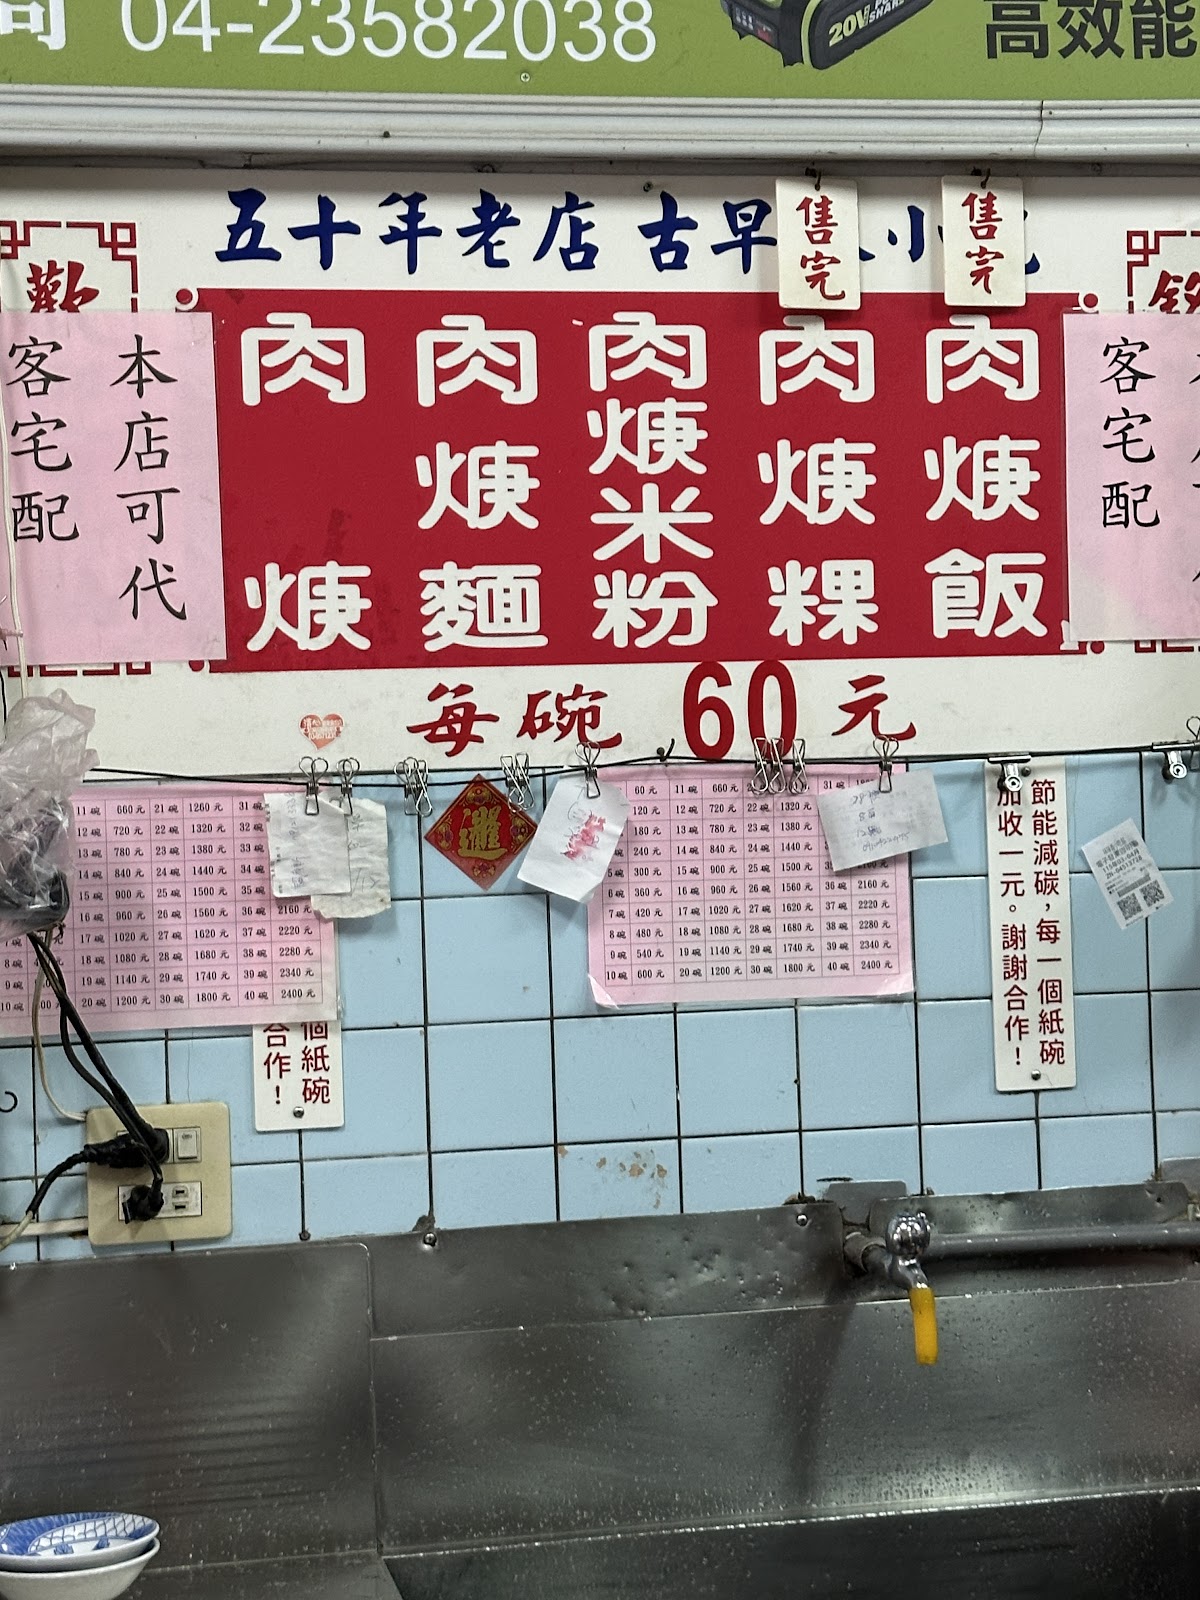 司 04-23582038
20V
SHARE
高效能
五十年老店 古早 小
售完
售完
歡
本店可代
客宅配
肉焿
肉焿麵
肉焿米粉
肉焿粿
肉焿飯
客宅配
每碗 60 元
11 碗 660 元 21 碗 1260 元 31 碗
12 碗 720 元 22 碗 1320 元 32 碗
13 碗 780 元 23 碗 1380 元 33 碗
14 碗 840 元 24 碗 1440 元 34 碗
15 碗 900 元 25 碗 1500 元 35 碗
16 碗 960 元 26 碗 1560 元 36 碗 2160 元
7 碗 17 碗 1020 元 27 碗 1620 元 37 碗 2220 元
8 碗 18 碗 1080 元 28 碗 1680 元 38 碗 2280 元
9 碗 19 碗 1140 元 29 碗 1740 元 39 碗 2340 元
10 碗 20 碗 1200 元 30 碗 1800 元 40 碗 2400 元
個紙碗
合作！
60 元 11 碗 660 31 碗
120 元 12 碗 720 元 22 碗 1320 元
180 元 13 碗 780 元 23 碗 1380 元
240 元 14 碗 840 元 24 碗 1440 元
5 碗 300 元 15 碗 900 元 25 碗 1500 元
6 碗 360 元 16 碗 960 元 26 碗 1560 元 36 碗 2160 元
7 碗 420 元 17 碗 1020 元 27 碗 1620 元 37 碗 2220 元
8 碗 480 元 18 碗 1080 元 28 碗 1680 元 38 碗 2280 元
9 碗 540 元 19 碗 1140 元 29 碗 1740 元 39 碗 2340 元
10 碗 600 元 20 碗 1200 元 30 碗 1800 元 40 碗 2400 元
節能減碳，每一個紙碗
加收一元。謝謝合作！